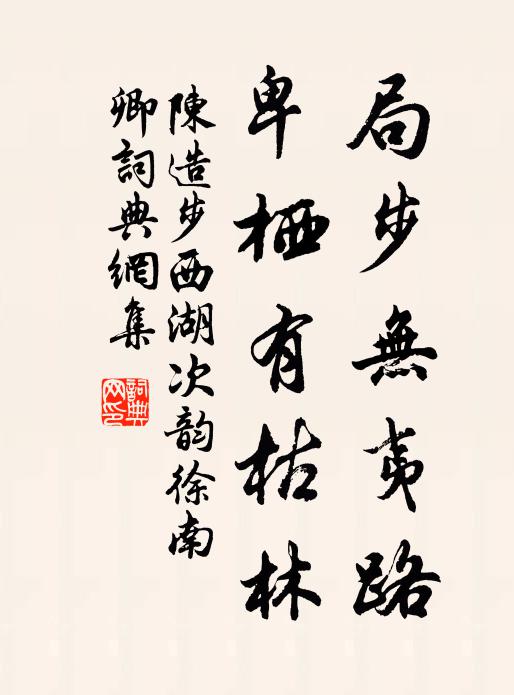 局步無夷路
卑栖有枯林
陳造步西湖次韵徐南
卿詞典網集
詞典
网印